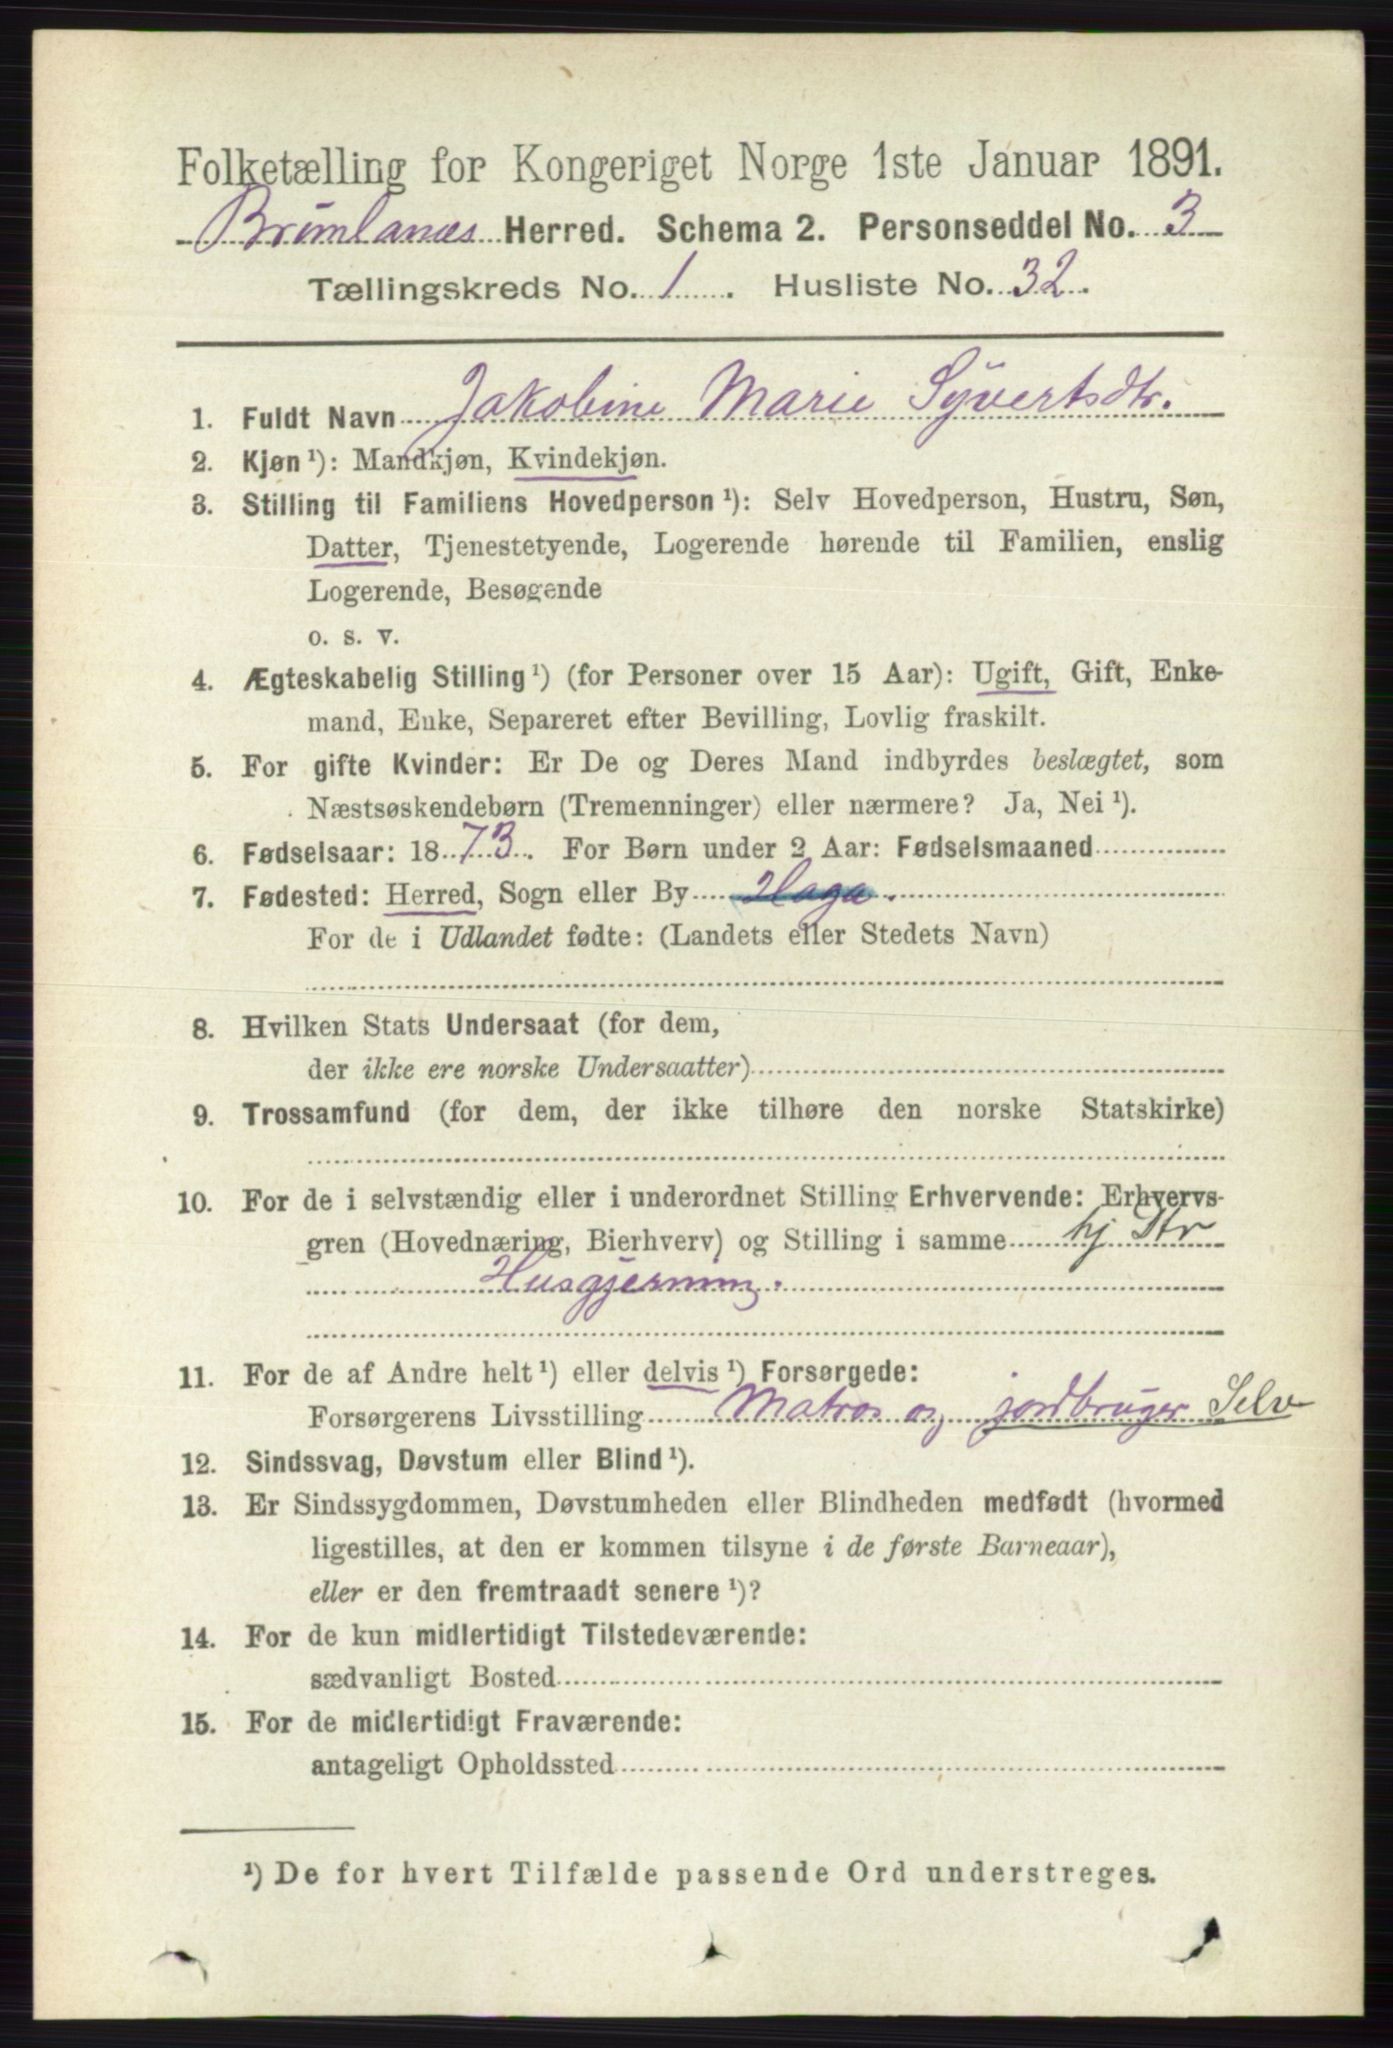 Folketælling for Kongeriget Norge 1ste Januar 1891.
Brunlanæs Herred. Schema 2. Personseddel No. 3
Tællingskreds No. 1. Husliste No. 32.
1. Fuldt Navn Jakobine Marie Syvertsdtr.
2. Kjøn ¹): Mandkjøn, Kvindekjøn.
3. Stilling til Familiens Hovedperson ¹): Selv Hovedperson, Hustru, Søn,
Datter, Tjenestetyende, Logerende hørende til Familien, enslig
Logerende, Besøgende
o. s. v.
4. Ægteskabelig Stilling ¹) (for Personer over 15 Aar): Ugift, Gift, Enke-
mand, Enke, Separeret efter Bevilling, Lovlig fraskilt.
5. For gifte Kvinder: Er De og Deres Mand indbyrdes beslægtet, som
Næstsøskendebørn (Tremenninger) eller nærmere? Ja, Nei ¹).
6. Fødselsaar: 1873. For Børn under 2 Aar: Fødselsmaaned
7. Fødested: Herred, Sogn eller By Haga.
For de i Udlandet fødte: (Landets eller Stedets Navn)
8. Hvilken Stats Undersaat (for dem,
der ikke ere norske Undersaatter)
9. Trossamfund (for dem, der ikke tilhøre den norske Statskirke)
10. For de i selvstændig eller i underordnet Stilling Erhvervende: Erhvervs-
gren (Hovednæring, Bierhverv) og Stilling i samme hj Str
Husgjerning.
11. For de af Andre helt ¹) eller delvis ¹) Forsørgede:
Forsørgerens Livsstilling Matros og jordbruger Selv
12. Sindssvag, Døvstum eller Blind ¹).
13. Er Sindssygdommen, Døvstumheden eller Blindheden medfødt (hvormed
ligestilles, at den er kommen tilsyne i de første Barneaar),
eller er den fremtraadt senere ¹)?
14. For de kun midlertidigt Tilstedeværende:
sædvanligt Bosted
15. For de midlertidigt Fraværende:
antageligt Opholdssted
¹) De for hvert Tilfælde passende Ord understreges.